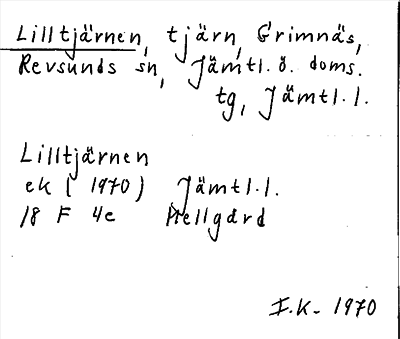 Lilltjärnen, tjärn, Grimnäs,
Revsunds sn, Jämtl. ö. doms.
tg, Jämtl. l.
Lilltjärnen
ek ( 1970) Jämtl. l.
18 F 4e Hellgård
I.K. 1970